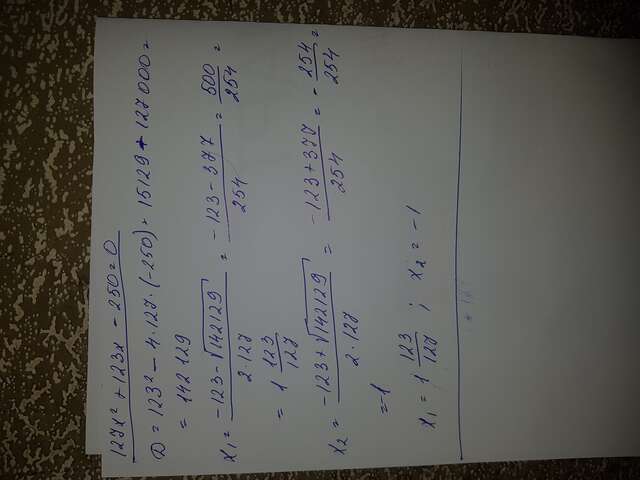 127x² + 123x - 250 = 0
D = 123² - 4·127·(-250) = 15129 + 127000 =
= 142129
x₁ = (-123 - √142129) / (2·127) = (-123 - 377) / 254 = 500/254 =
= 1 123/127
x₂ = (-123 + √142129) / (2·127) = (-123 + 377) / 254 = - 254/254 =
= -1
x₁ = 1 123/127 ; x₂ = -1